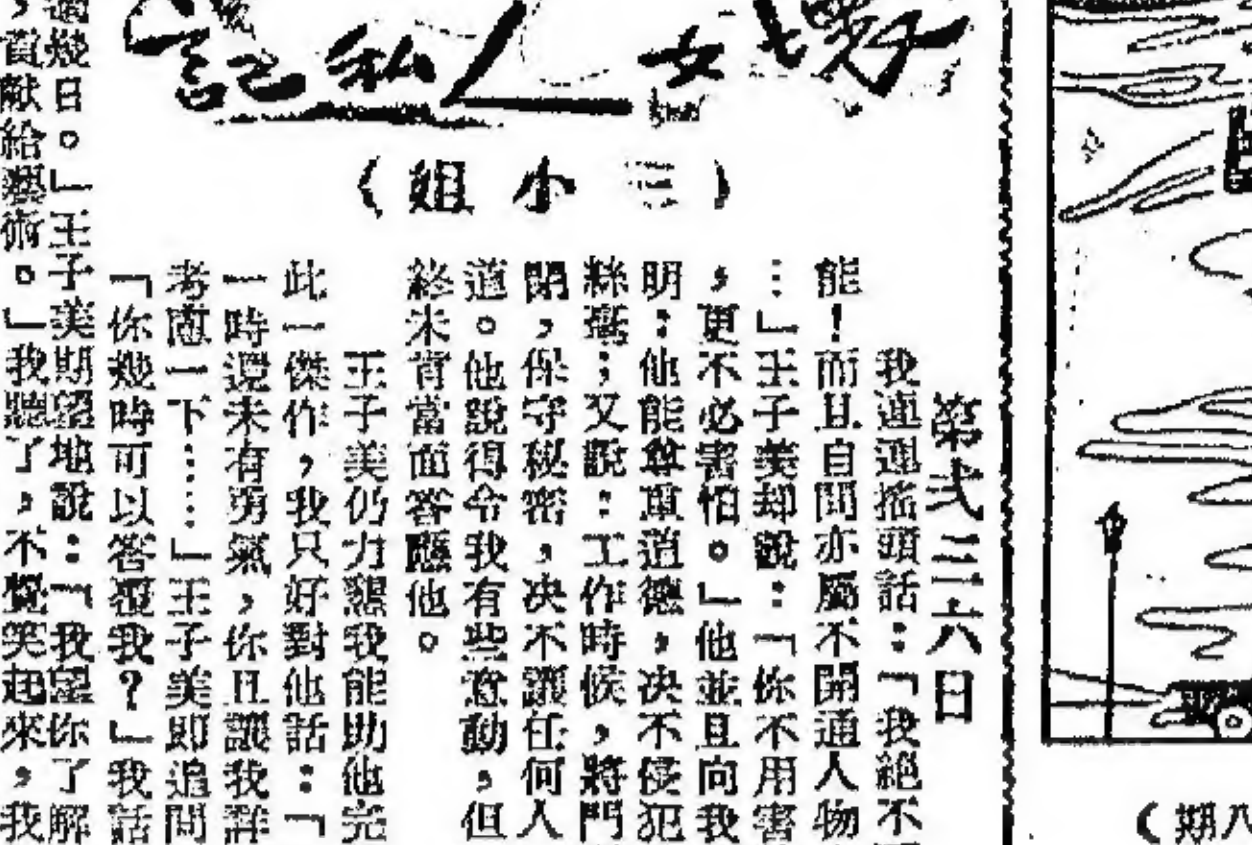 壞女人私記
（三小姐）
第弍三六日
我連連搖頭話：「我絕不
能！而且自問亦屬不開通人物
…」王子美却說：「你不用害
，更不必害怕。」他並且向我
明：他能尊重道德，決不侵犯
絲毫；又說：工作時候，將門
閉，保守秘密，決不讓任何人
道。他說得令我有些意動，但
終未肯當面答應他。
王子美仍力懇我能助他完
此一傑作，我只好對他話：「
一時還未有勇氣，你且讓我詳
考慮一下……」王子美即追問
「你幾時可以答覆我？」我話
幾日。」王子美期望地說：「我望你了解
，貢獻給藝術。」我聽了，不覺笑起來，我
期八